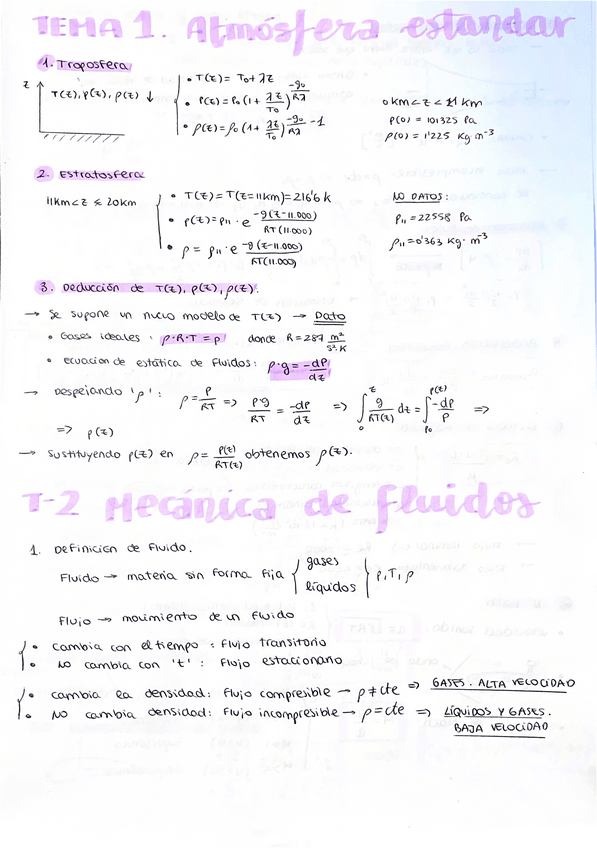 TEMA 1. Atmósfera estandar
1. Troposfera
z
T(z), p(z), ρ(z) ↓
• T(z) = T₀ + λz
• P(z) = P₀ (1 + λz/T₀)^(-g₀/Rλ)
• ρ(z) = ρ₀ (1 + λz/T₀)^(-g₀/Rλ - 1)
0 km < z < 11 km
p(0) = 101325 Pa
ρ(0) = 1'225 Kg m⁻³
2. Estratosfera
11Km < z ≤ 20km
• T(z) = T(z=11km) = 216'6 k
• p(z) = p₁₁ · e^(-g(z-11.000)/RT(11.000))
• ρ = ρ₁₁ · e^(-g(z-11.000)/RT(11.000))
NO DATOS:
P₁₁ = 22558 Pa
ρ₁₁ = 0'363 Kg · m⁻³
3. Deducción de T(z), p(z), ρ(z).
→ Se supone un nuevo modelo de T(z) → Dato
• Gases ideales : ρ·R·T = p donde R = 287 m²/s²·K
• ecuacion de estática de Fluidos: ρ·g = -dP/dz
→ Despejando 'ρ' : ρ = P/RT => P·g/RT = -dP/dz => ∫₀ᶻ g/RT(z) dz = ∫_{P₀}^{P(z)} -dP/P =>
=> p(z)
→ Sustituyendo p(z) en ρ = P(z)/RT(z) obtenemos ρ(z).
T-2 Mecánica de fluidos
1. Definicion de Fluido.
Fluido → materia sin forma fija { gases líquidos } p, T, ρ
Flujo → movimiento de un fluido
• cambia con el tiempo : Flujo transitorio
• NO cambia con 't' : Flujo estacionario
• cambia la densidad: Flujo compresible → ρ ≠ cte => GASES. ALTA VELOCIDAD
• NO cambia densidad: Flujo incompresible → ρ = cte => LÍQUIDOS Y GASES.
BAJA VELOCIDAD